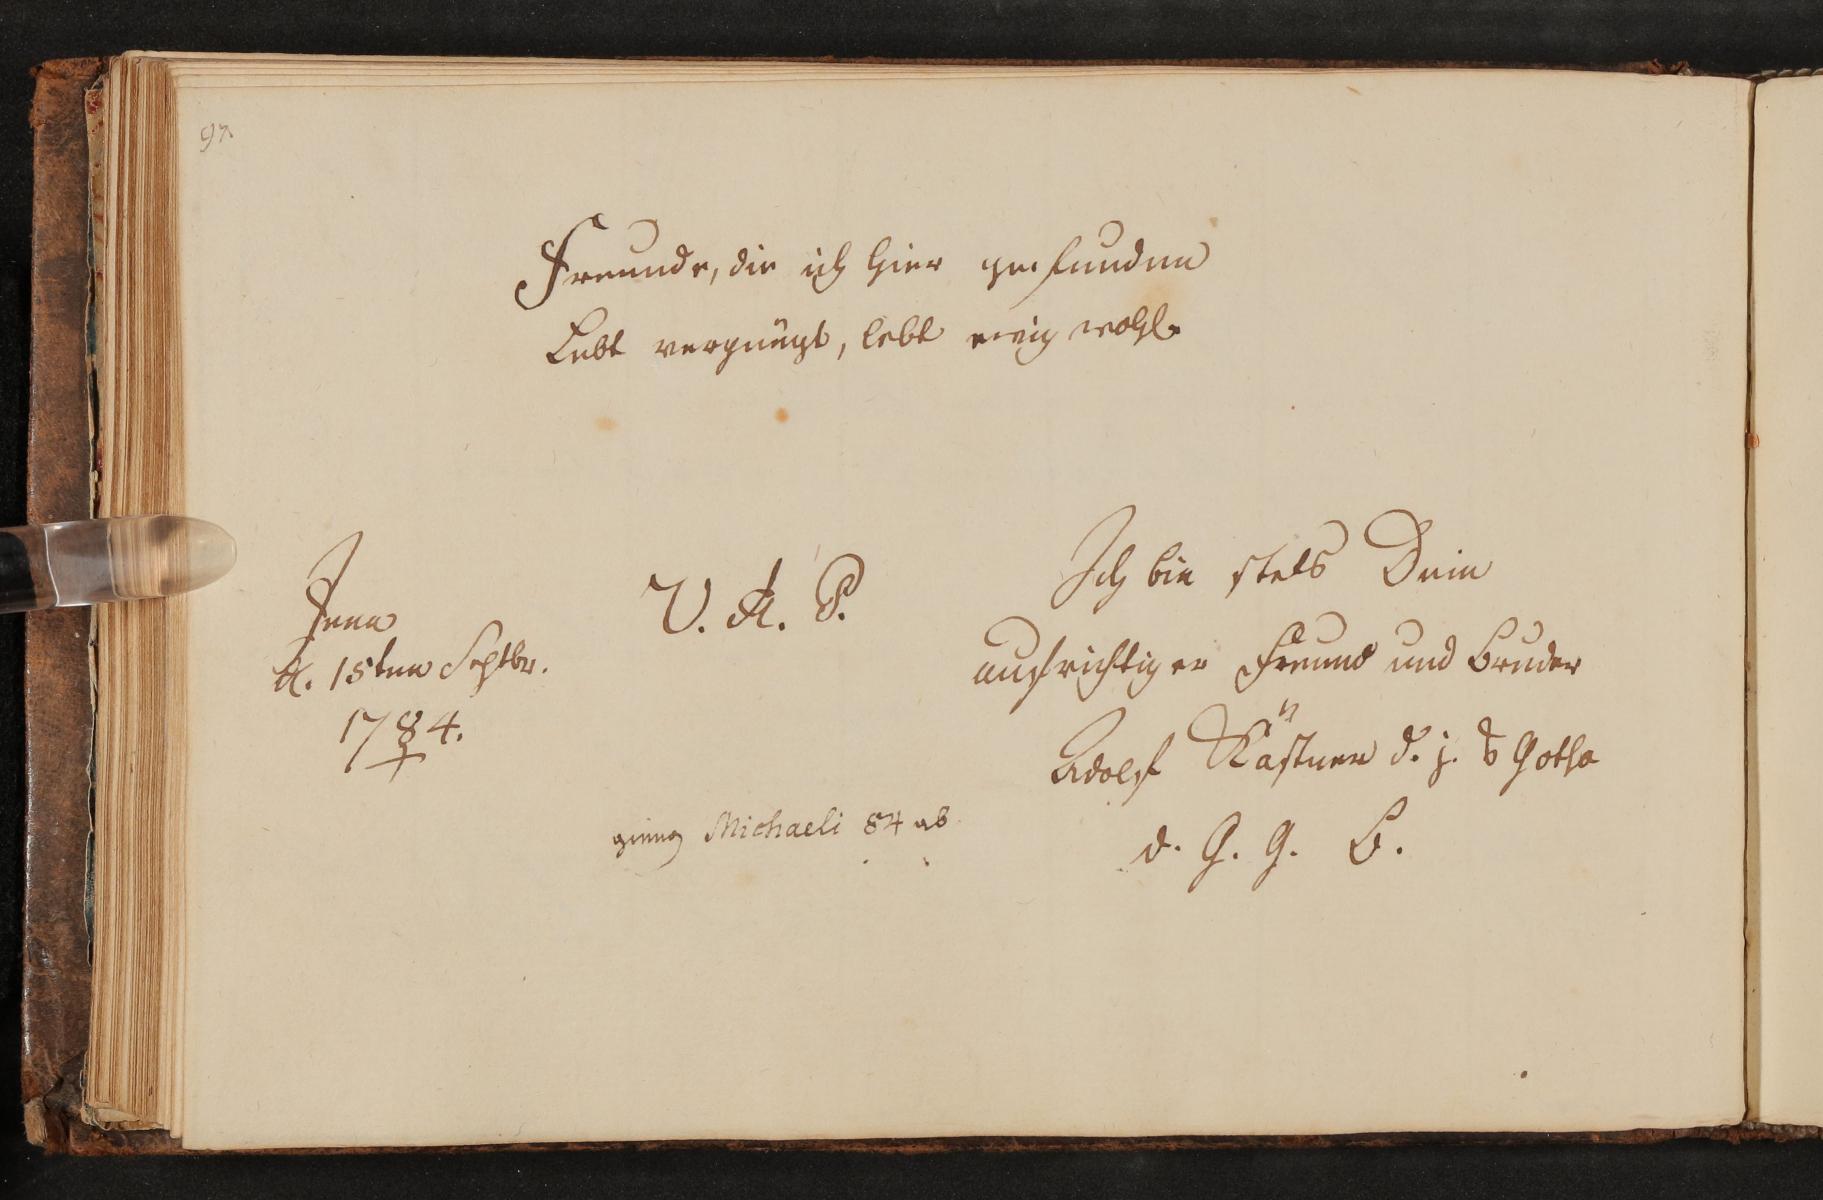 97.
Freunde, die ich hier gefunden
Lebt vergnügt, lebt ewig wohl.
Jena
d. 15ten Septbr.
1784.
V. A. S.
Ich bin stets Dein
aufrichtiger Freund und Bruder
Adolf Kästner d. j. Gotha
d. G. G. B.
gieng Michaeli 84 ab